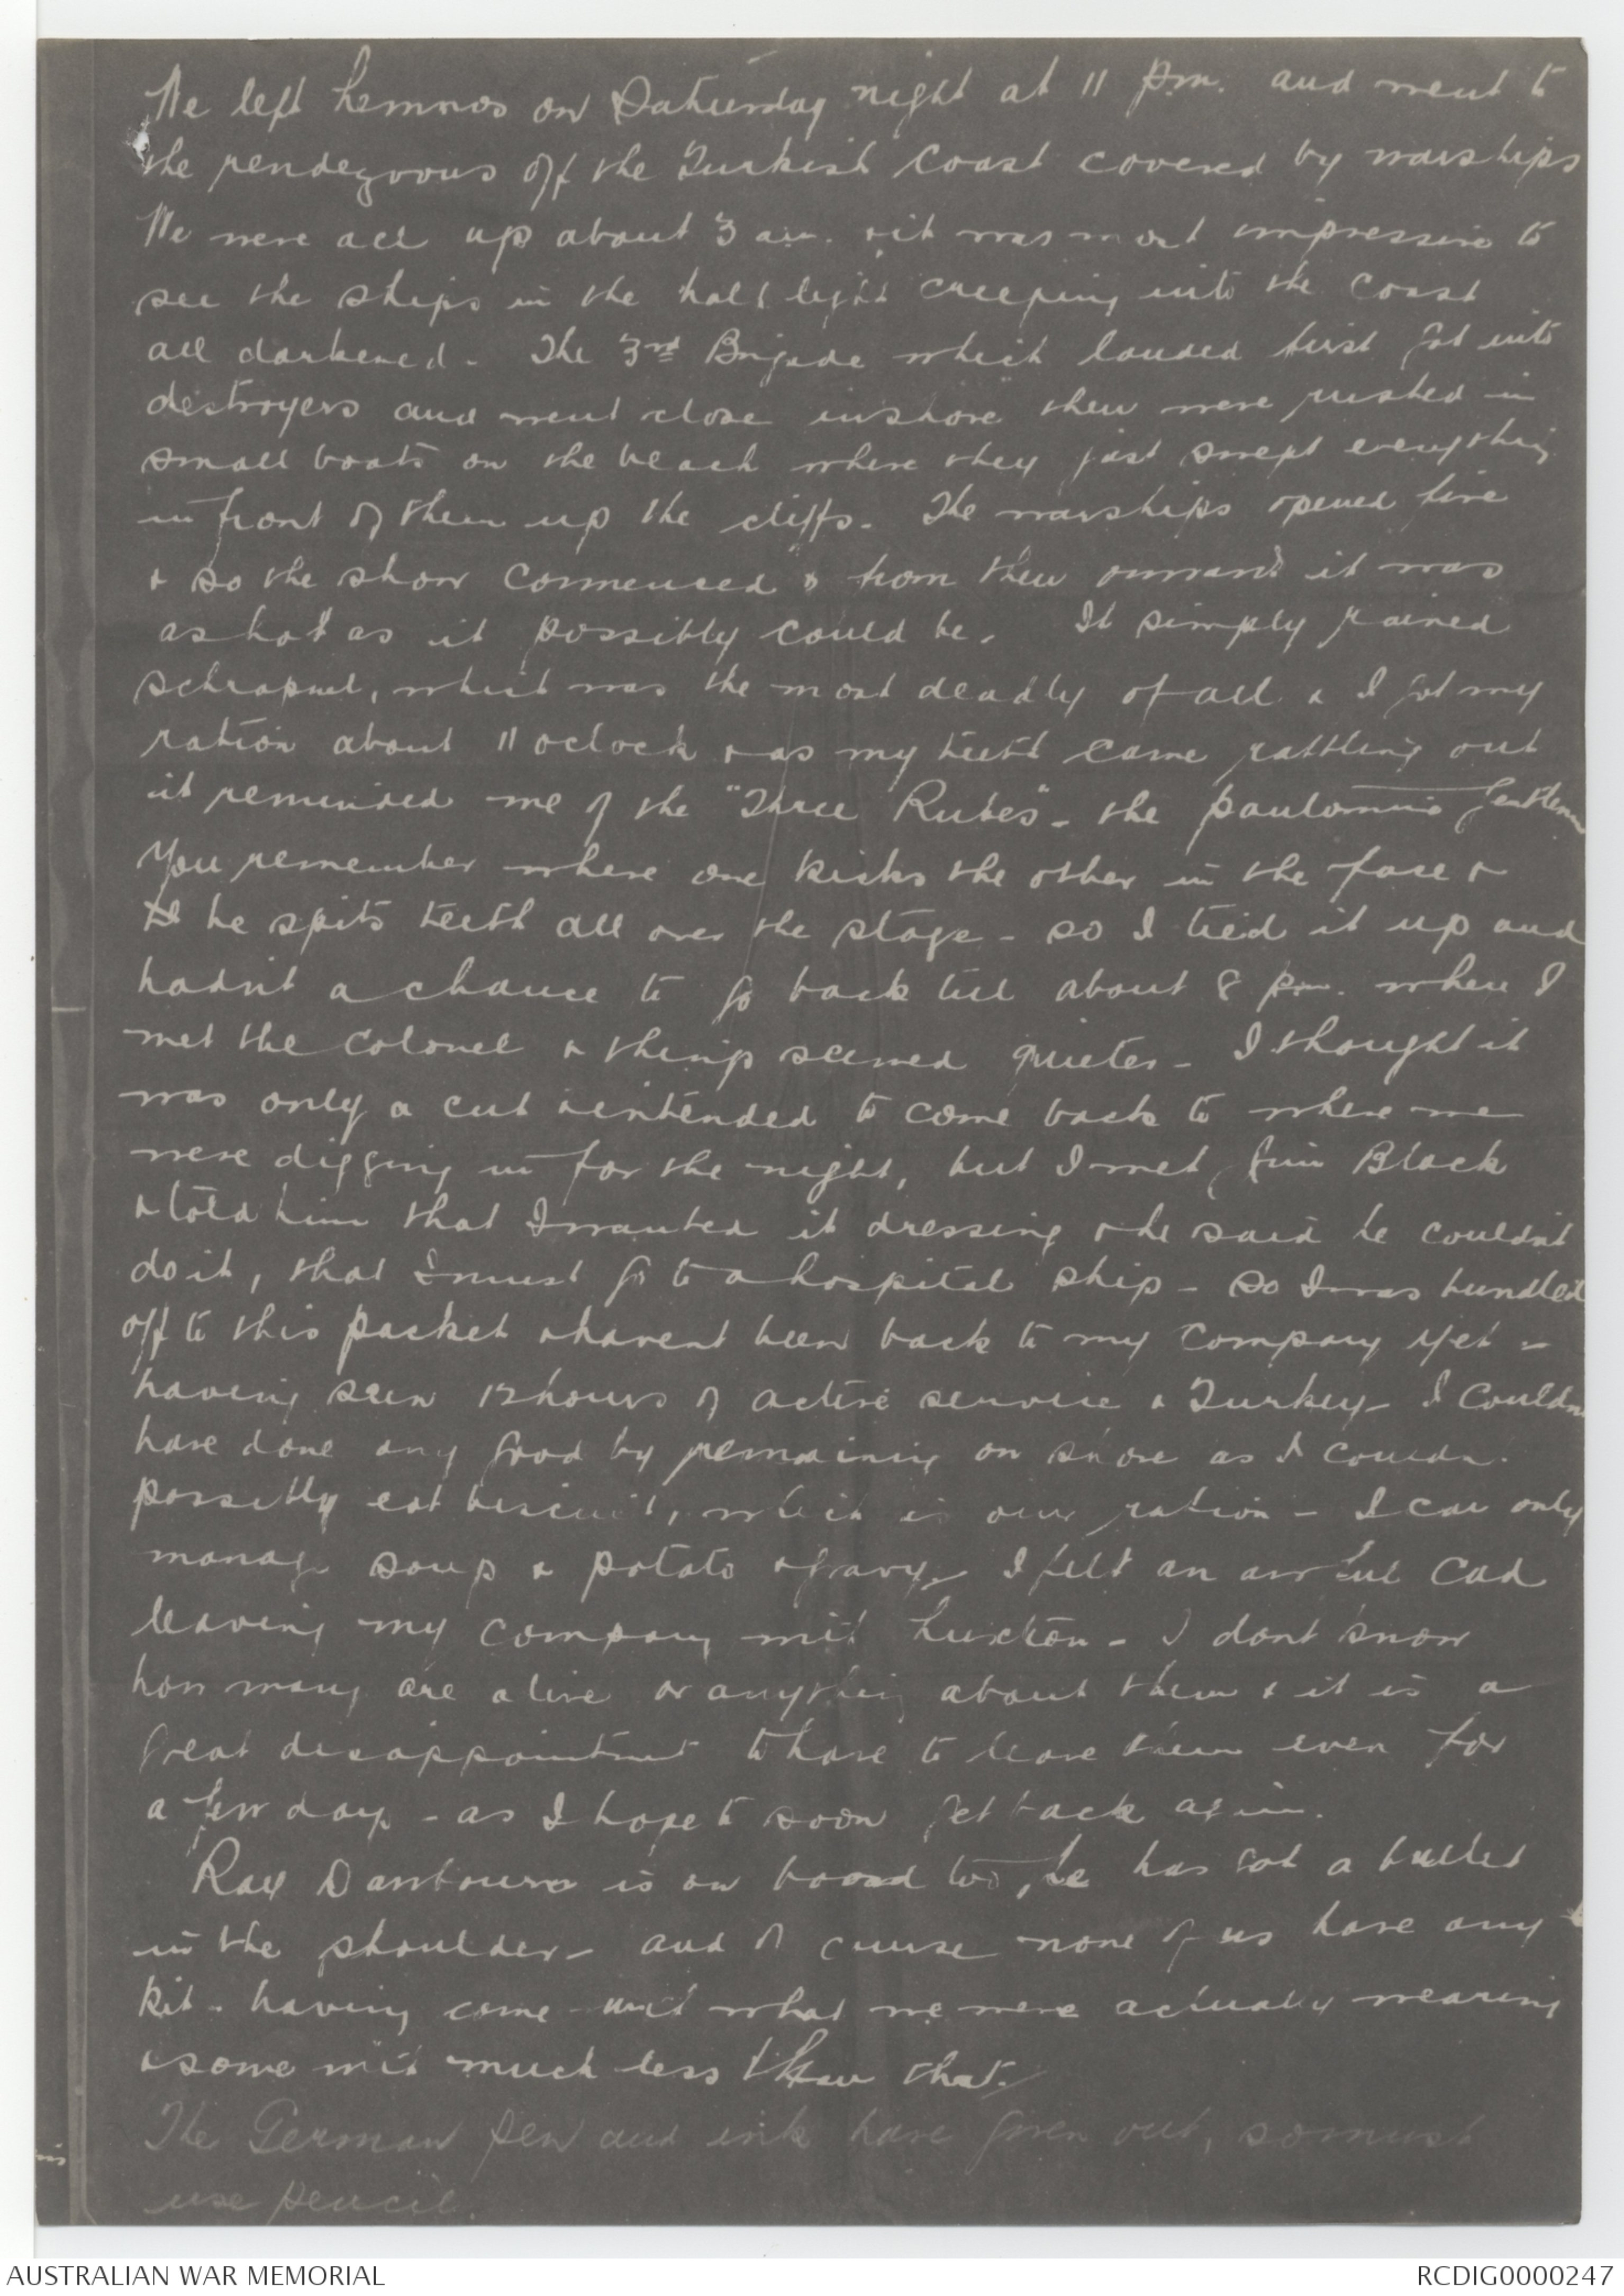 We left Lemnos on Saturday night at 11 p.m. and went to
the rendezvous off the Turkish Coast covered by warships
We were all up about 3 am. & it was most impressive to
see the ships in the half light creeping into the Coast
all darkened - The 3rd Brigade which landed first got into
destroyers and went close inshore then were rushed in
small boats on the beach where they just swept everything
in front of them up the cliffs - The warships opened fire
& so the show commenced & from then onwards it was
as hot as it possibly could be. It simply rained
schrapnel, which was the most deadly of all & I got my
ration about 11 oclock & as my teeth came rattling out
it reminded me of the "Three Rubes" - the pantomime gentlemen
You remember where one kicks the other in the face &
he spits teeth all over the stage - so I tied it up and
hadn't a chance to go back till about 8 pm. where I
met the Colonel & things seemed quieter - I thought it
was only a cut & intended to come back to where we
were digging in for the night, but I met Jim Black
& told him that I wanted it dressing & he said he couldn't
do it, that I must go to a hospital ship - so I was bundled
off to this packet & havent been back to my Company yet -
having seen 12 hours of active service & Turkey - I couldn
have done any good by remaining on shore as I couldn.
possibly eat biscuit, which is our ration - I can only
manage soup & potato & gravy - I felt an awful Cad
leaving my company with Luxton - I dont know
how many are alive or anything about them & it is a
great disappointment to have to leave them even for
a few days - as I hope to soon get back again.
Ray is on board too, he has got a bullet
in the shoulder - and of course none of us have any
kit - having come with what we were actually wearing
& some with much less than that.
The German pen and ink have given out, so must
use pencil.
AUSTRALIAN WAR MEMORIAL
RCDIG0000247